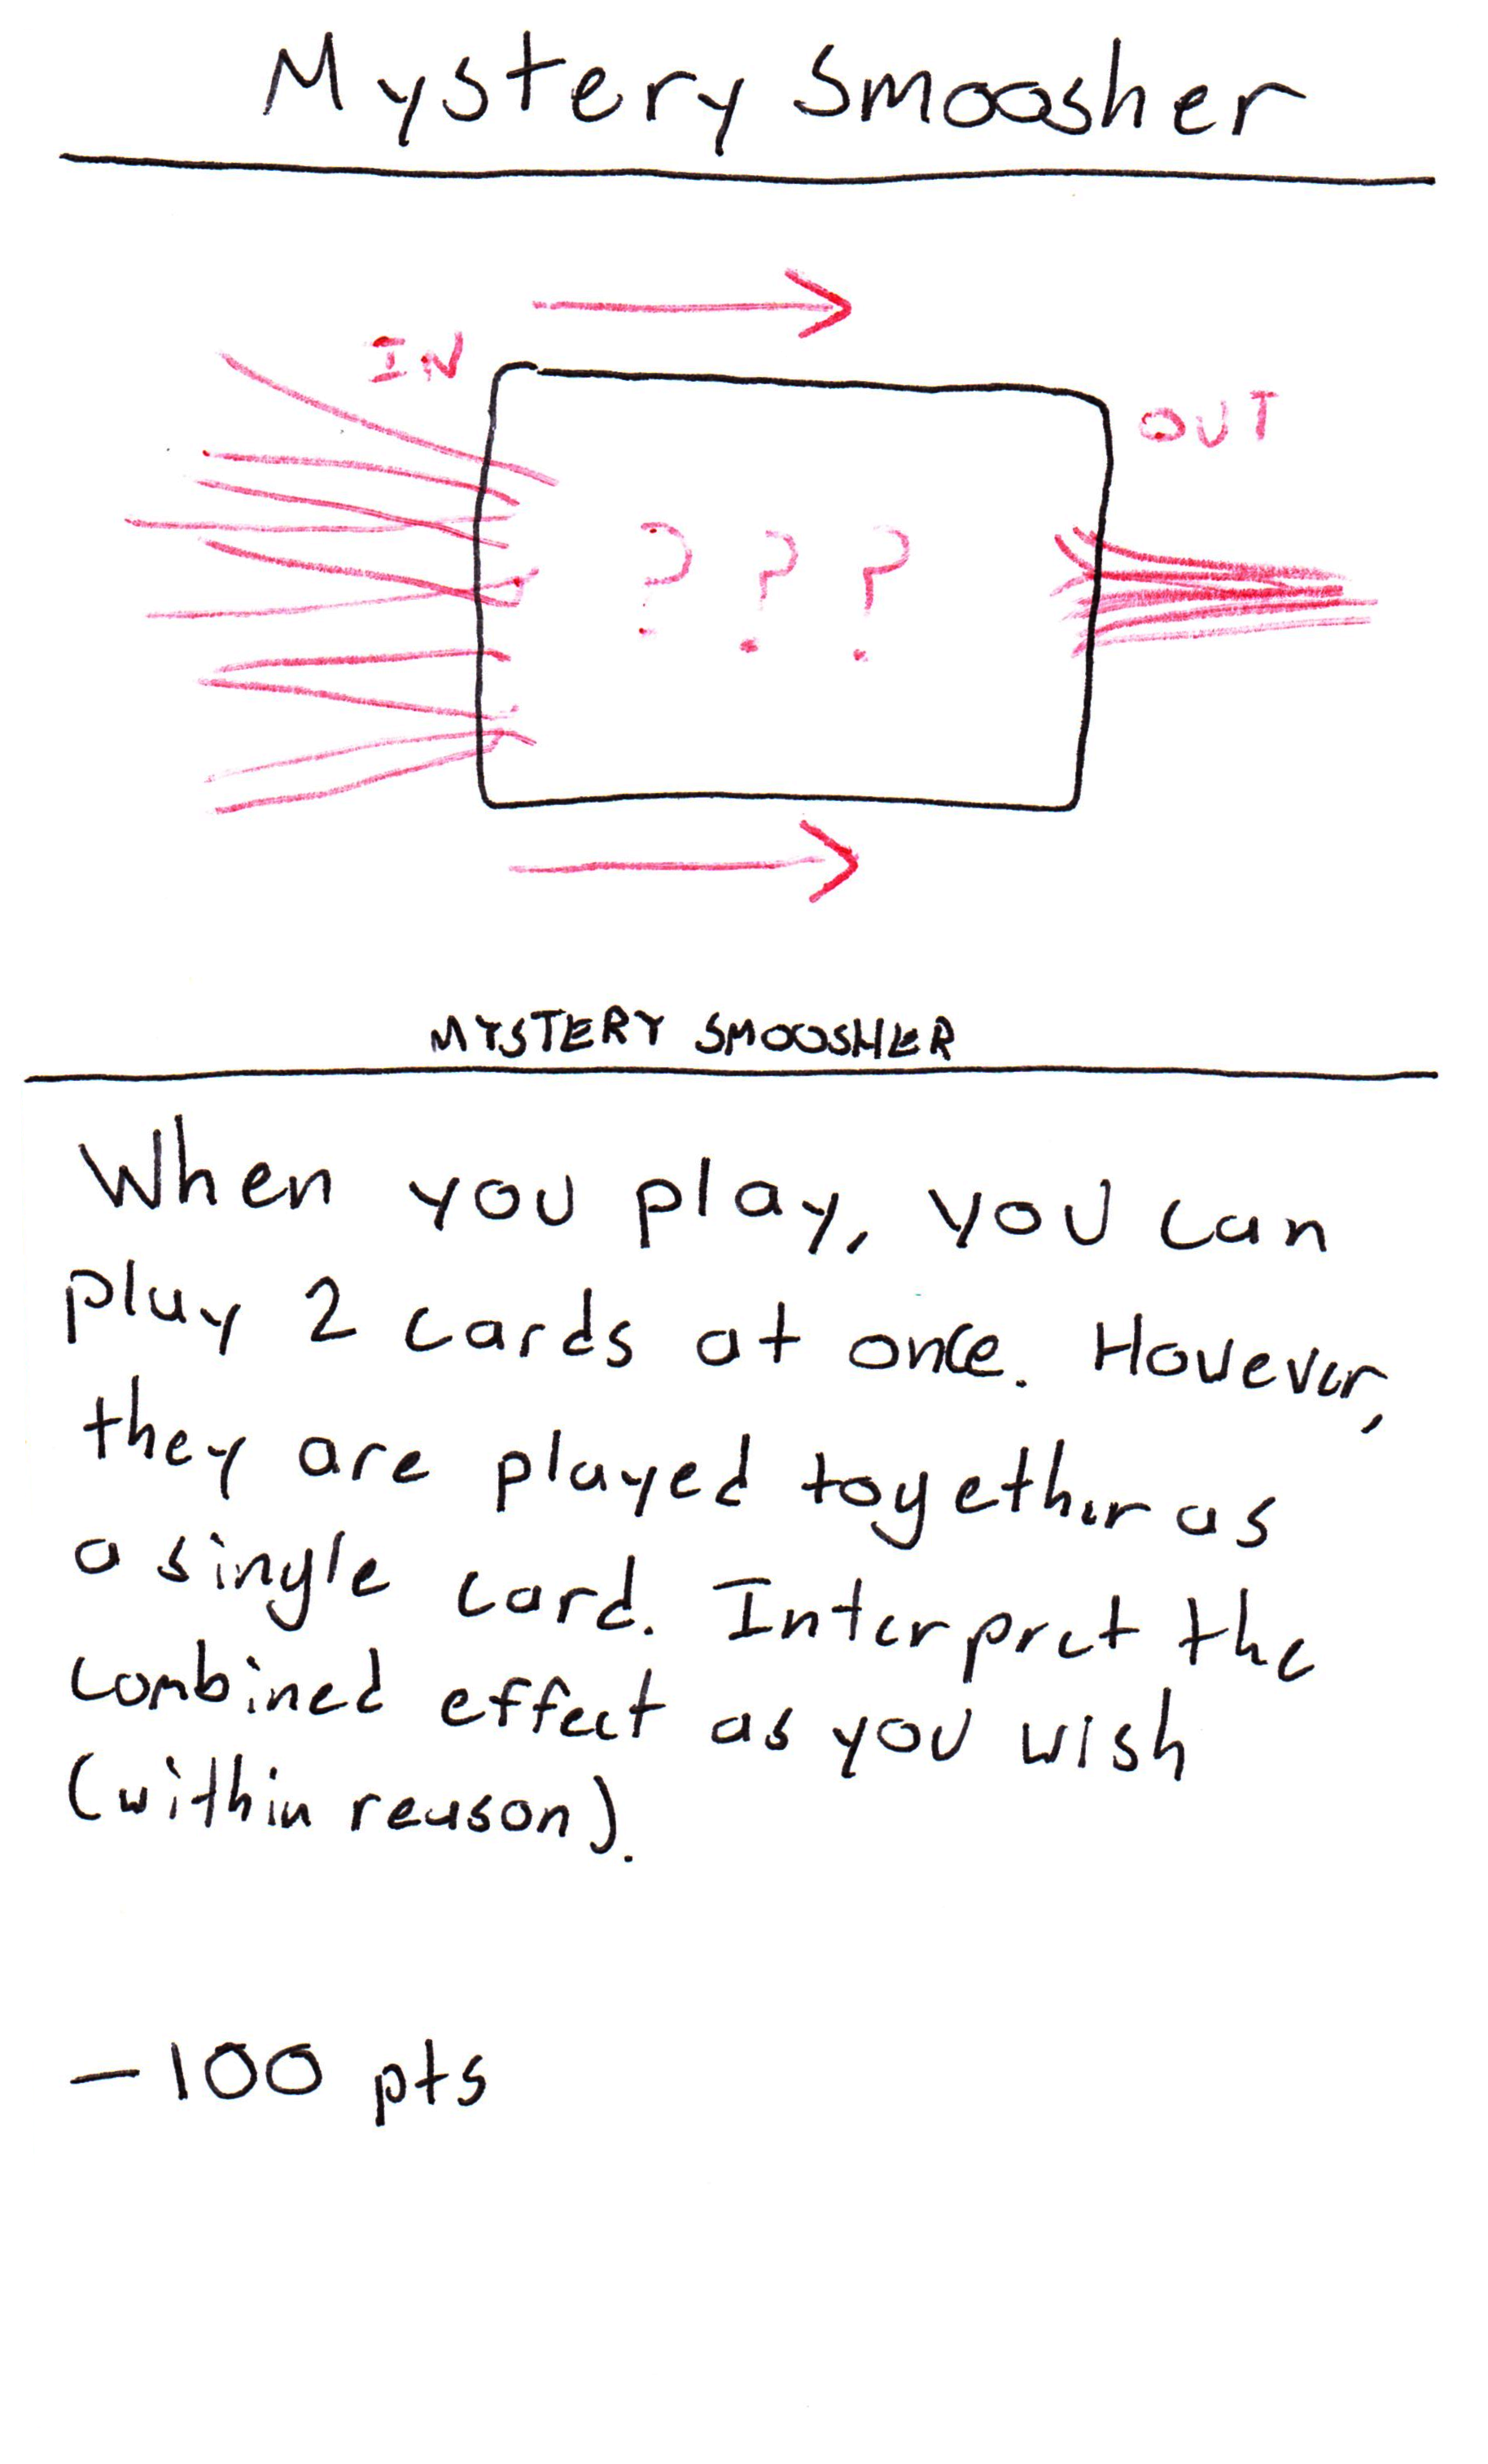 Mystery Smoosher
IN
OUT
? ? ?
MYSTERY SMOOSHER
When you play, you can
play 2 cards at once. However,
they are played together as
a single card. Interpret the
combined effect as you wish
(within reason).
-100 pts